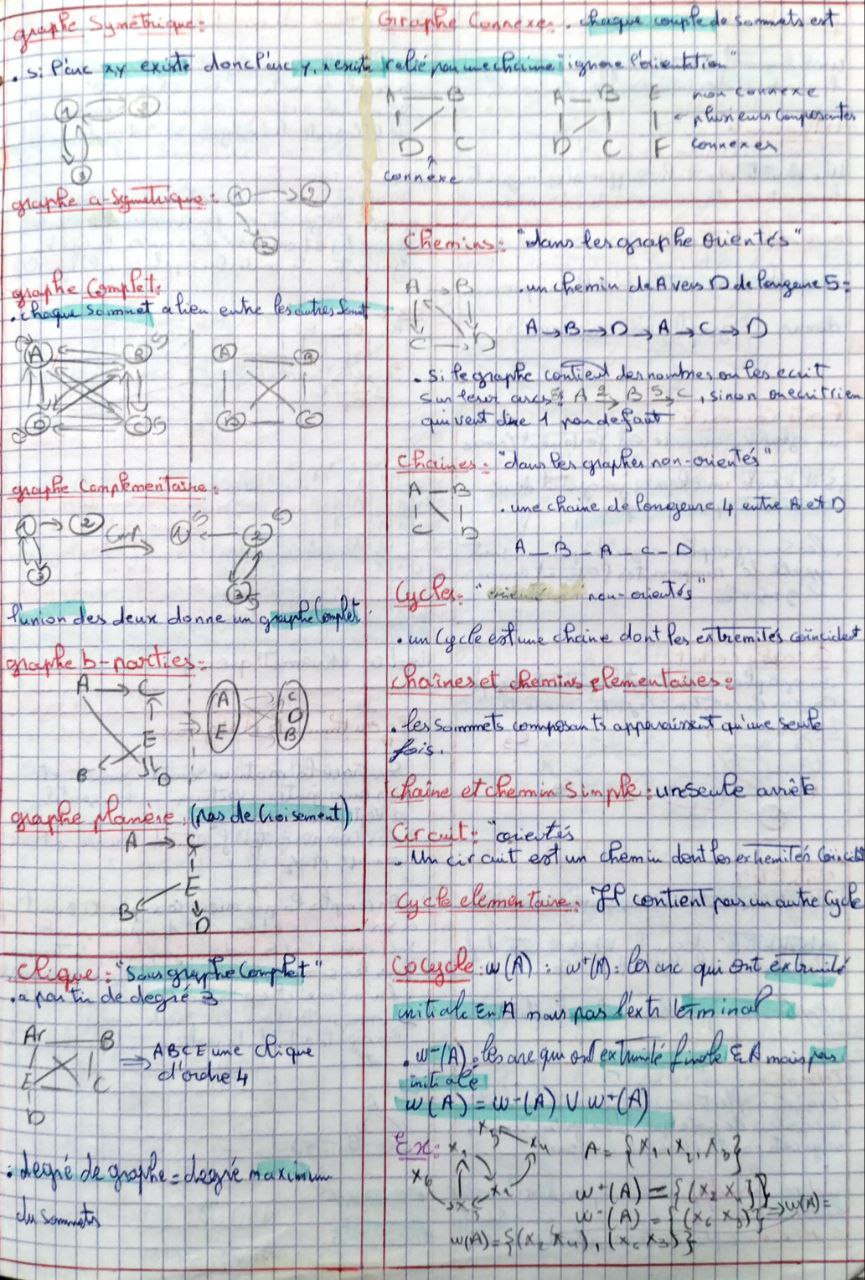 graphe Symétrique:
. si l'arc x,y existe donc l'arc y,x existe
1 2
3
graphe a-Symétrique: 1 2
3
graphe Complet:
. chaque Sommet a lien entre les autres
A B
D C
A B
D C
graphe Complémentaire:
1 2 Comp 1 2
3 3
l'union des deux donne un graphe Complet.
graphe b-parties:
A C
E
B D
A C
E D
B
graphe planère (pas de Croisement)
A C
E
B
D
Clique: "Sous graphe Complet"
. a partir de degré 3
A B
E C
D
⇒ ABCE une clique
d'ordre 4
. degré de graphe = degré maximum
du Sommets
Graphe Connexe: . chaque couple de sommets est
relié par une chaine "ignore l'orientation"
A B
D C
connexe
A B E
D C F
non connexe
plusieurs composantes
connexes
Chemins: "dans les graphe orientés"
A B
C D
. un chemin de A vers D de longeure 5:
A→B→D→A→C→D
. si le graphe contient des nombres on les ecrit
sur leur arcs: A → B 5→ C, sinon on ecrit rien
qui veut dire 1 par defaut
Chaines: "dans les graphes non-orientés"
A B
C D
. une chaine de longeure 4 entre A et D
A _ B _ A _ C _ D
Cycles: " non-orientés"
. un Cycle est une chaine dont les extremités coïncident
Chaînes et chemins elementaires:
. les sommets composants apparaissent qu'une seule
fois.
Chaîne et chemin Simple: une seule arrête
Circuit: "orientés
. Un circuit est un chemin dont les extremités
Cycle elementaire: Il contient pas un autre Cycle
Cocycle: w(A) : w⁺(A): les arc qui ont extrimité
initiale En A mais pas l'extr terminal
. w⁻(A): les arc qui ont extrimité finale E A mais pas
initiale
w(A) = w⁻(A) U w⁺(A)
Ex:
A = {X1, X2, X3}
w⁺(A) = {(X2 X4)}
w⁻(A) = {(X6 X3)} ⇒ w(A)=
w(A)={(X2 X4), (X6 X3)}